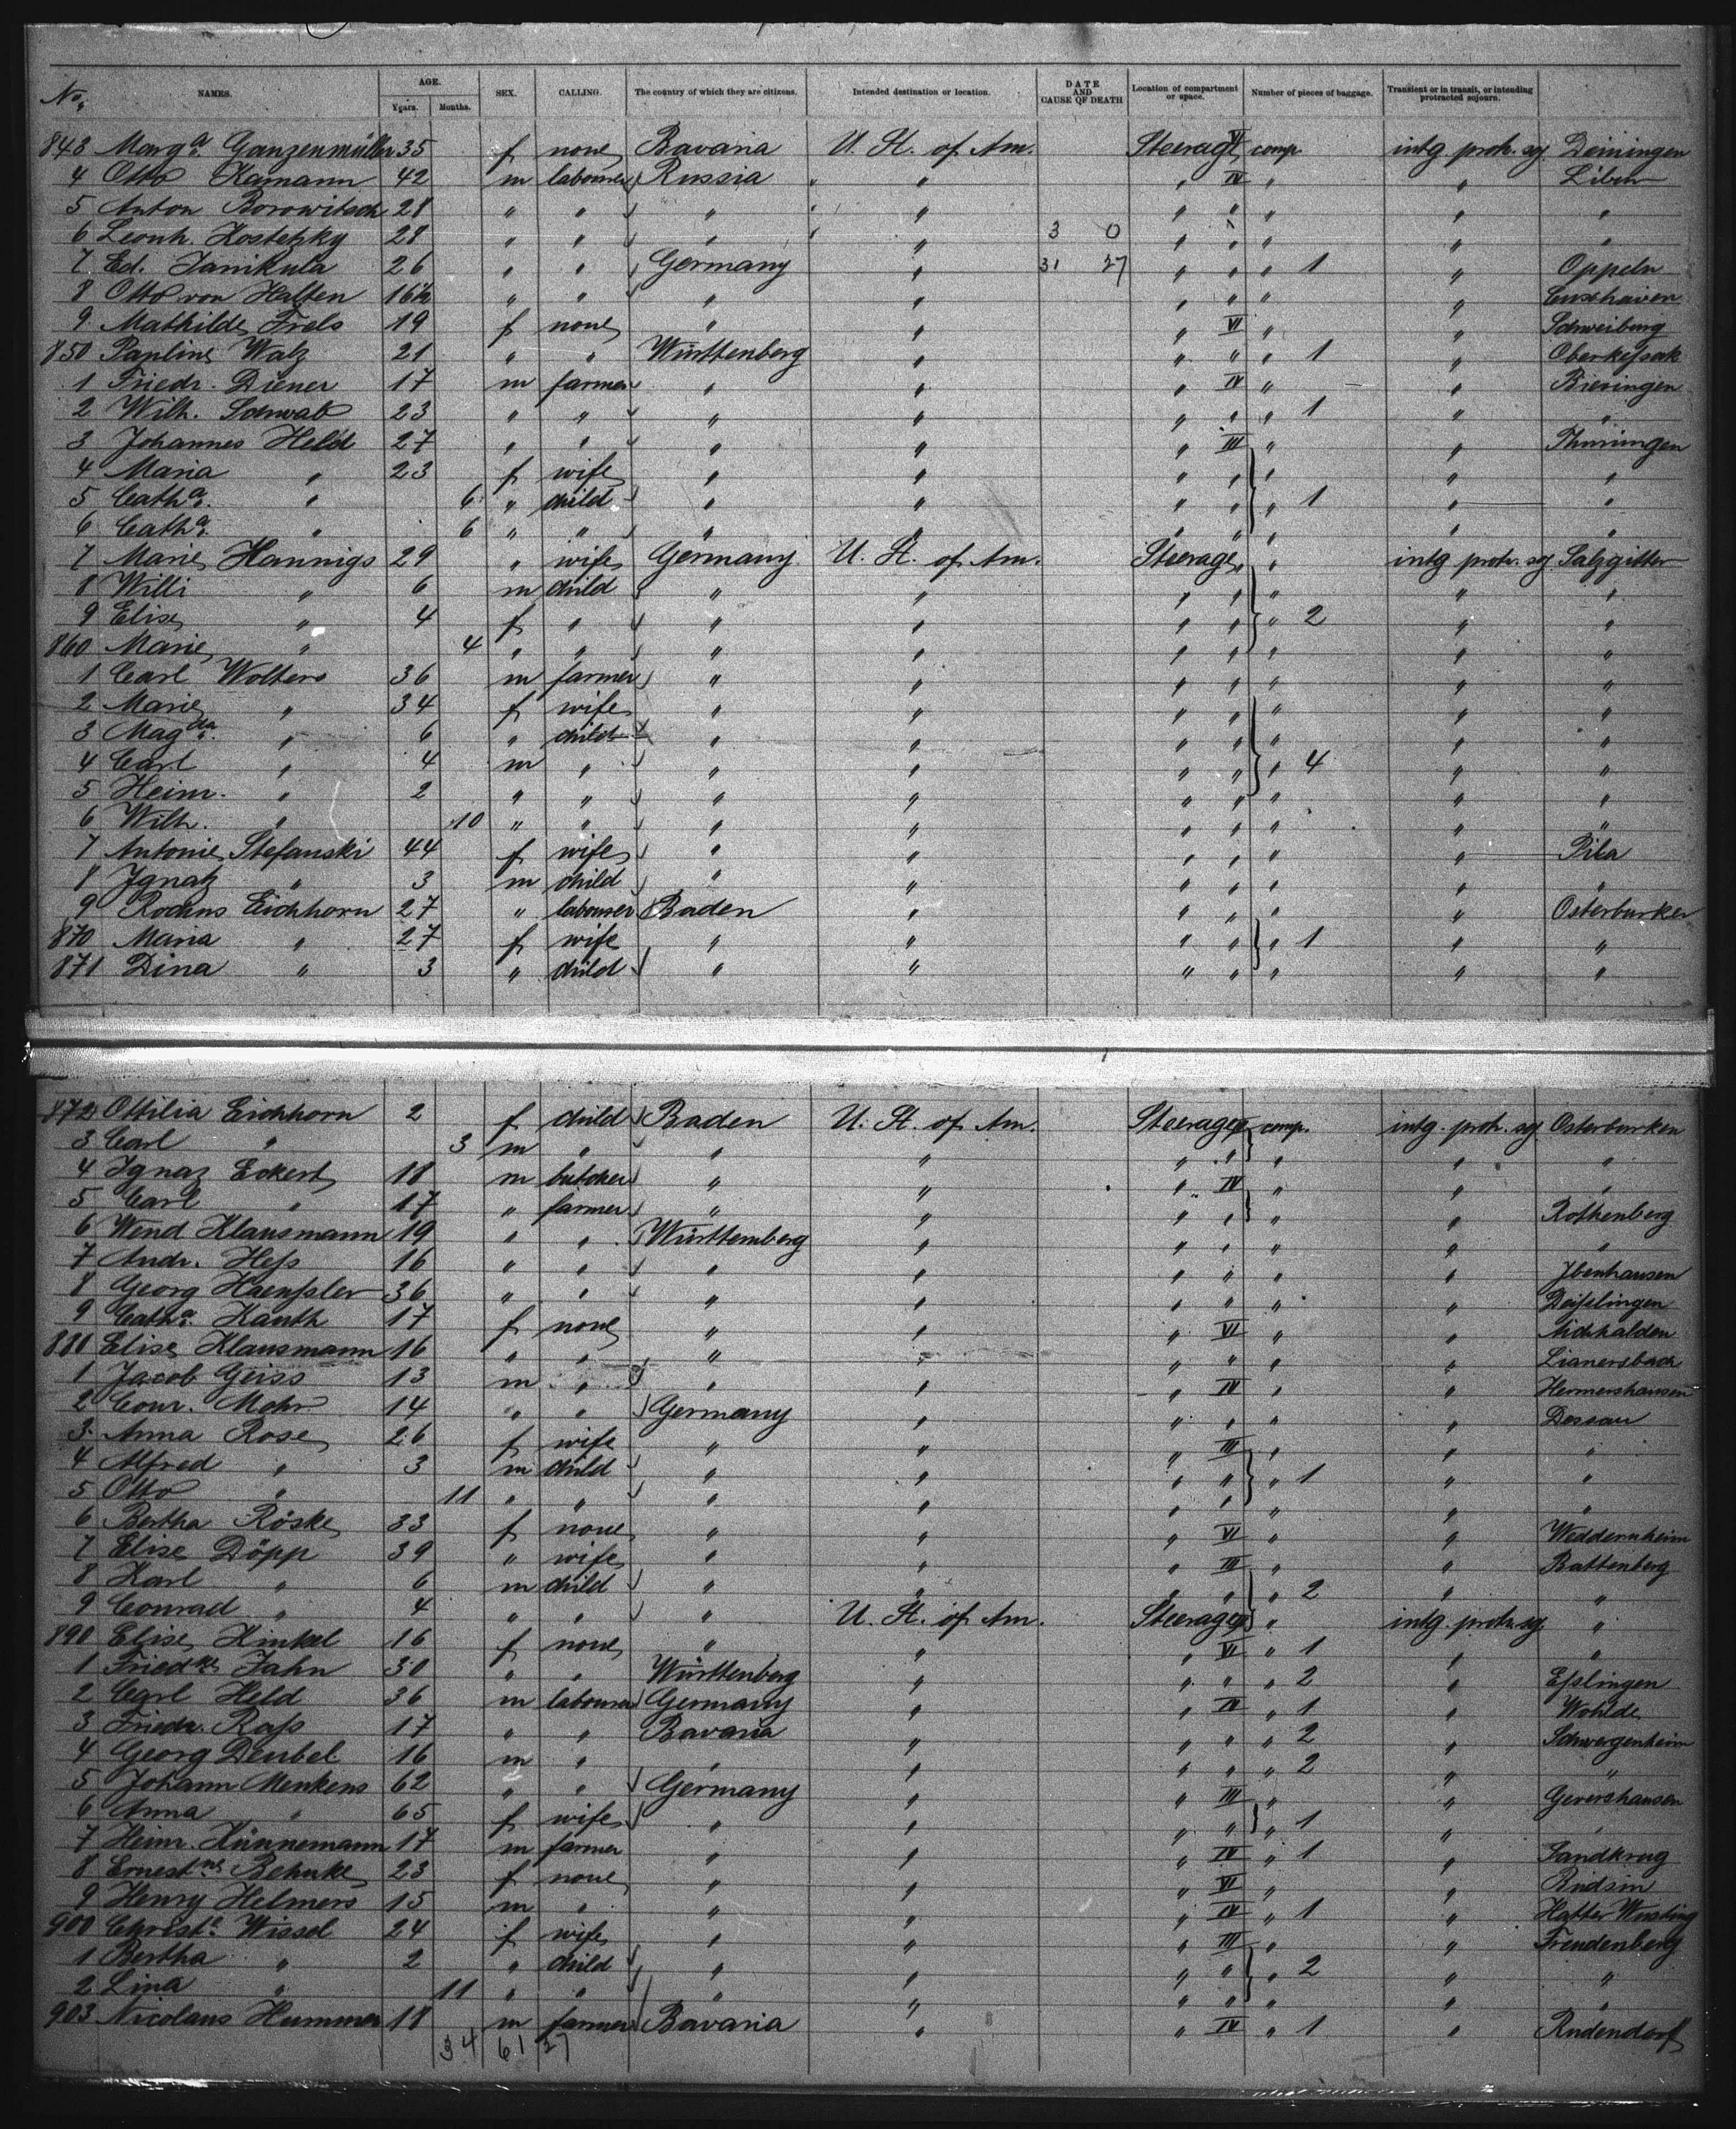 No. NAMES. AGE. Years. Months. SEX. CALLING. The country of which they are citizens. Intended destination or location. DATE AND CAUSE OF DEATH Location of compartment or space. Number of pieces of baggage. Transient or in transit, or intending protracted sojourn.
843 Marga. Ganzenmüller 35 f none Bavaria U. St. of Am. Steerage VI comp. intg protr. sg Deiningen
4 Otto Kamann 42 m labourer Russia " " " IV " " Liban
5 Anton Borowitsch 28 " " " " " " " " "
6 Leonh. Kostetzky 28 " " " " 3 0 " " " " "
7 Ed. Janikula 26 " " Germany " 31 27 " " " 1 " Oppeln
8 Otto von Halten 16½ " " " " " " " " Cuxhaven
9 Mathilde Frels 19 f none " " " VI " " Schweiburg
850 Pauline Walz 21 " " Württenberg " " " " 1 "
1 Friedr. Diener 17 m farmer " " " IV " " Bieringen
2 Wilh. Schwab 23 " " " " " " " 1 " "
3 Johannes Held 27 " " " " " III " " Thuningen
4 Maria " 23 f wife " " " " " " "
5 Catha. " 6 " child " " " " " 1 " "
6 Catha. " 6 " " " " " " " " "
7 Marie Hannigs 29 " wife Germany U. St. of Am. Steerage " " intg protr. sg Salzgitter
8 Willi " 6 m child " " " " " " "
9 Elise " 4 f " " " " " " 2 " "
860 Marie " 4 " " " " " " " " "
1 Carl Wolters 36 m farmer " " " " " " "
2 Marie " 34 f wife " " " " " " "
3 Magda. " 6 " child " " " " " " "
4 Carl " 4 m " " " " " " 4 " "
5 Heinr. " 2 " " " " " " " " "
6 Wilh. " 10 " " " " " " " " "
7 Antonie Stefanski 44 f wife " " " " " " Pila
8 Ignatz " 3 m child " " " " " " "
9 Rochus Eichhorn 27 " labourer Baden " " " " " Osterburken
870 Maria " 27 f wife " " " " " 1 " "
871 Dina " 3 " child " " " " " " "
872 Ottilia Eichhorn 2 f child Baden U. St. of Am. Steerage comp. intg. protr. sg Osterburken
3 Carl " 3 m " " " " " " " "
4 Ignaz Eckert 18 m butcher " " " IV " " "
5 Carl " 17 " farmer " " " " " " Rothenberg
6 Wend Klausmann 19 " " Württemberg " " " " " "
7 Andr. Heß 16 " " " " " " " " Ibenhausen
8 Georg Haenßler 36 " " " " " " " " Deißlingen
9 Catha. Kauth 17 f none " " " VI " " Aichhalden
880 Elise Klausmann 16 " " " " " " " "
1 Jacob Geiss 13 m " " " " IV " " Hermershausen
2 Conr. Mohr 14 " " Germany " " " " " Dessau
3 Anna Rose 26 f wife " " " III " " "
4 Alfred " 3 m child " " " " " 1 " "
5 Otto " 11 " " " " " " " " "
6 Bertha Röske 33 f none " " " VI " " Weddernheim
7 Elise Döpp 39 " wife " " " III " " Battenberg
8 Karl " 6 m child " " " " " 2 " "
9 Conrad " 4 " " " U. St. of Am. Steerage " intg. protr. sg. "
890 Elise Hinkel 16 f none " " " VI " 1 " "
1 Friedke Jahn 30 " " Württenberg " " " " 2 " Eßlingen
2 Carl Held 36 m labourer Germany " " IV " 1 " Wohlde
3 Friedr. Raß 17 " " Bavaria " " " " 2 " Schwegenheim
4 Georg Deubel 16 m " " " " " " 2 " "
5 Johann Menkens 62 " " Germany " " III " " Gevershausen
6 Anna " 65 f wife " " " " " 1 " "
7 Heinr. Künnemann 17 m farmer " " " IV " 1 " Sandkrug
8 Ernestne Behnke 23 f none " " " VI " "
9 Henry Helmers 15 m " " " " IV " 1 " Hatter Wüsting
900 Christe. Wissel 24 f wife " " " III " " Freudenberg
1 Bertha " 2 " child " " " " " 2 " "
2 Lina " 11 " " " " " " " " "
903 Nicolaus Hummer 18 m farmer Bavaria " " IV " 1 " Rudendorf
34 61 27